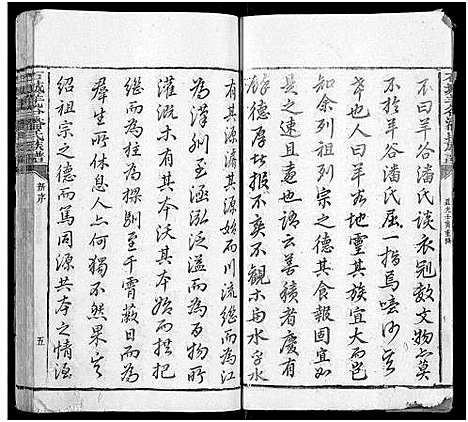 不曰羊谷潘氏談衣冠數文物亦莫
不指羊谷潘氏屈一指焉
也人曰羊谷地靈其族宜大而邑
知余列祖列宗之德其食報固宜如
是之速且遠也語云善積者慶有
餘德厚者報不爽不觀木與水乎水
有其源濬其源始而川流繼而為江
為漢則至涵泓泛溢而為百物所
灌溉木有其本沃其本始而拱把
繼而為棟則至干霄蔽日而為
群生所休息人亦何獨不然果
紹祖宗之德而篤同源共本之情
潘氏族譜
新序
五